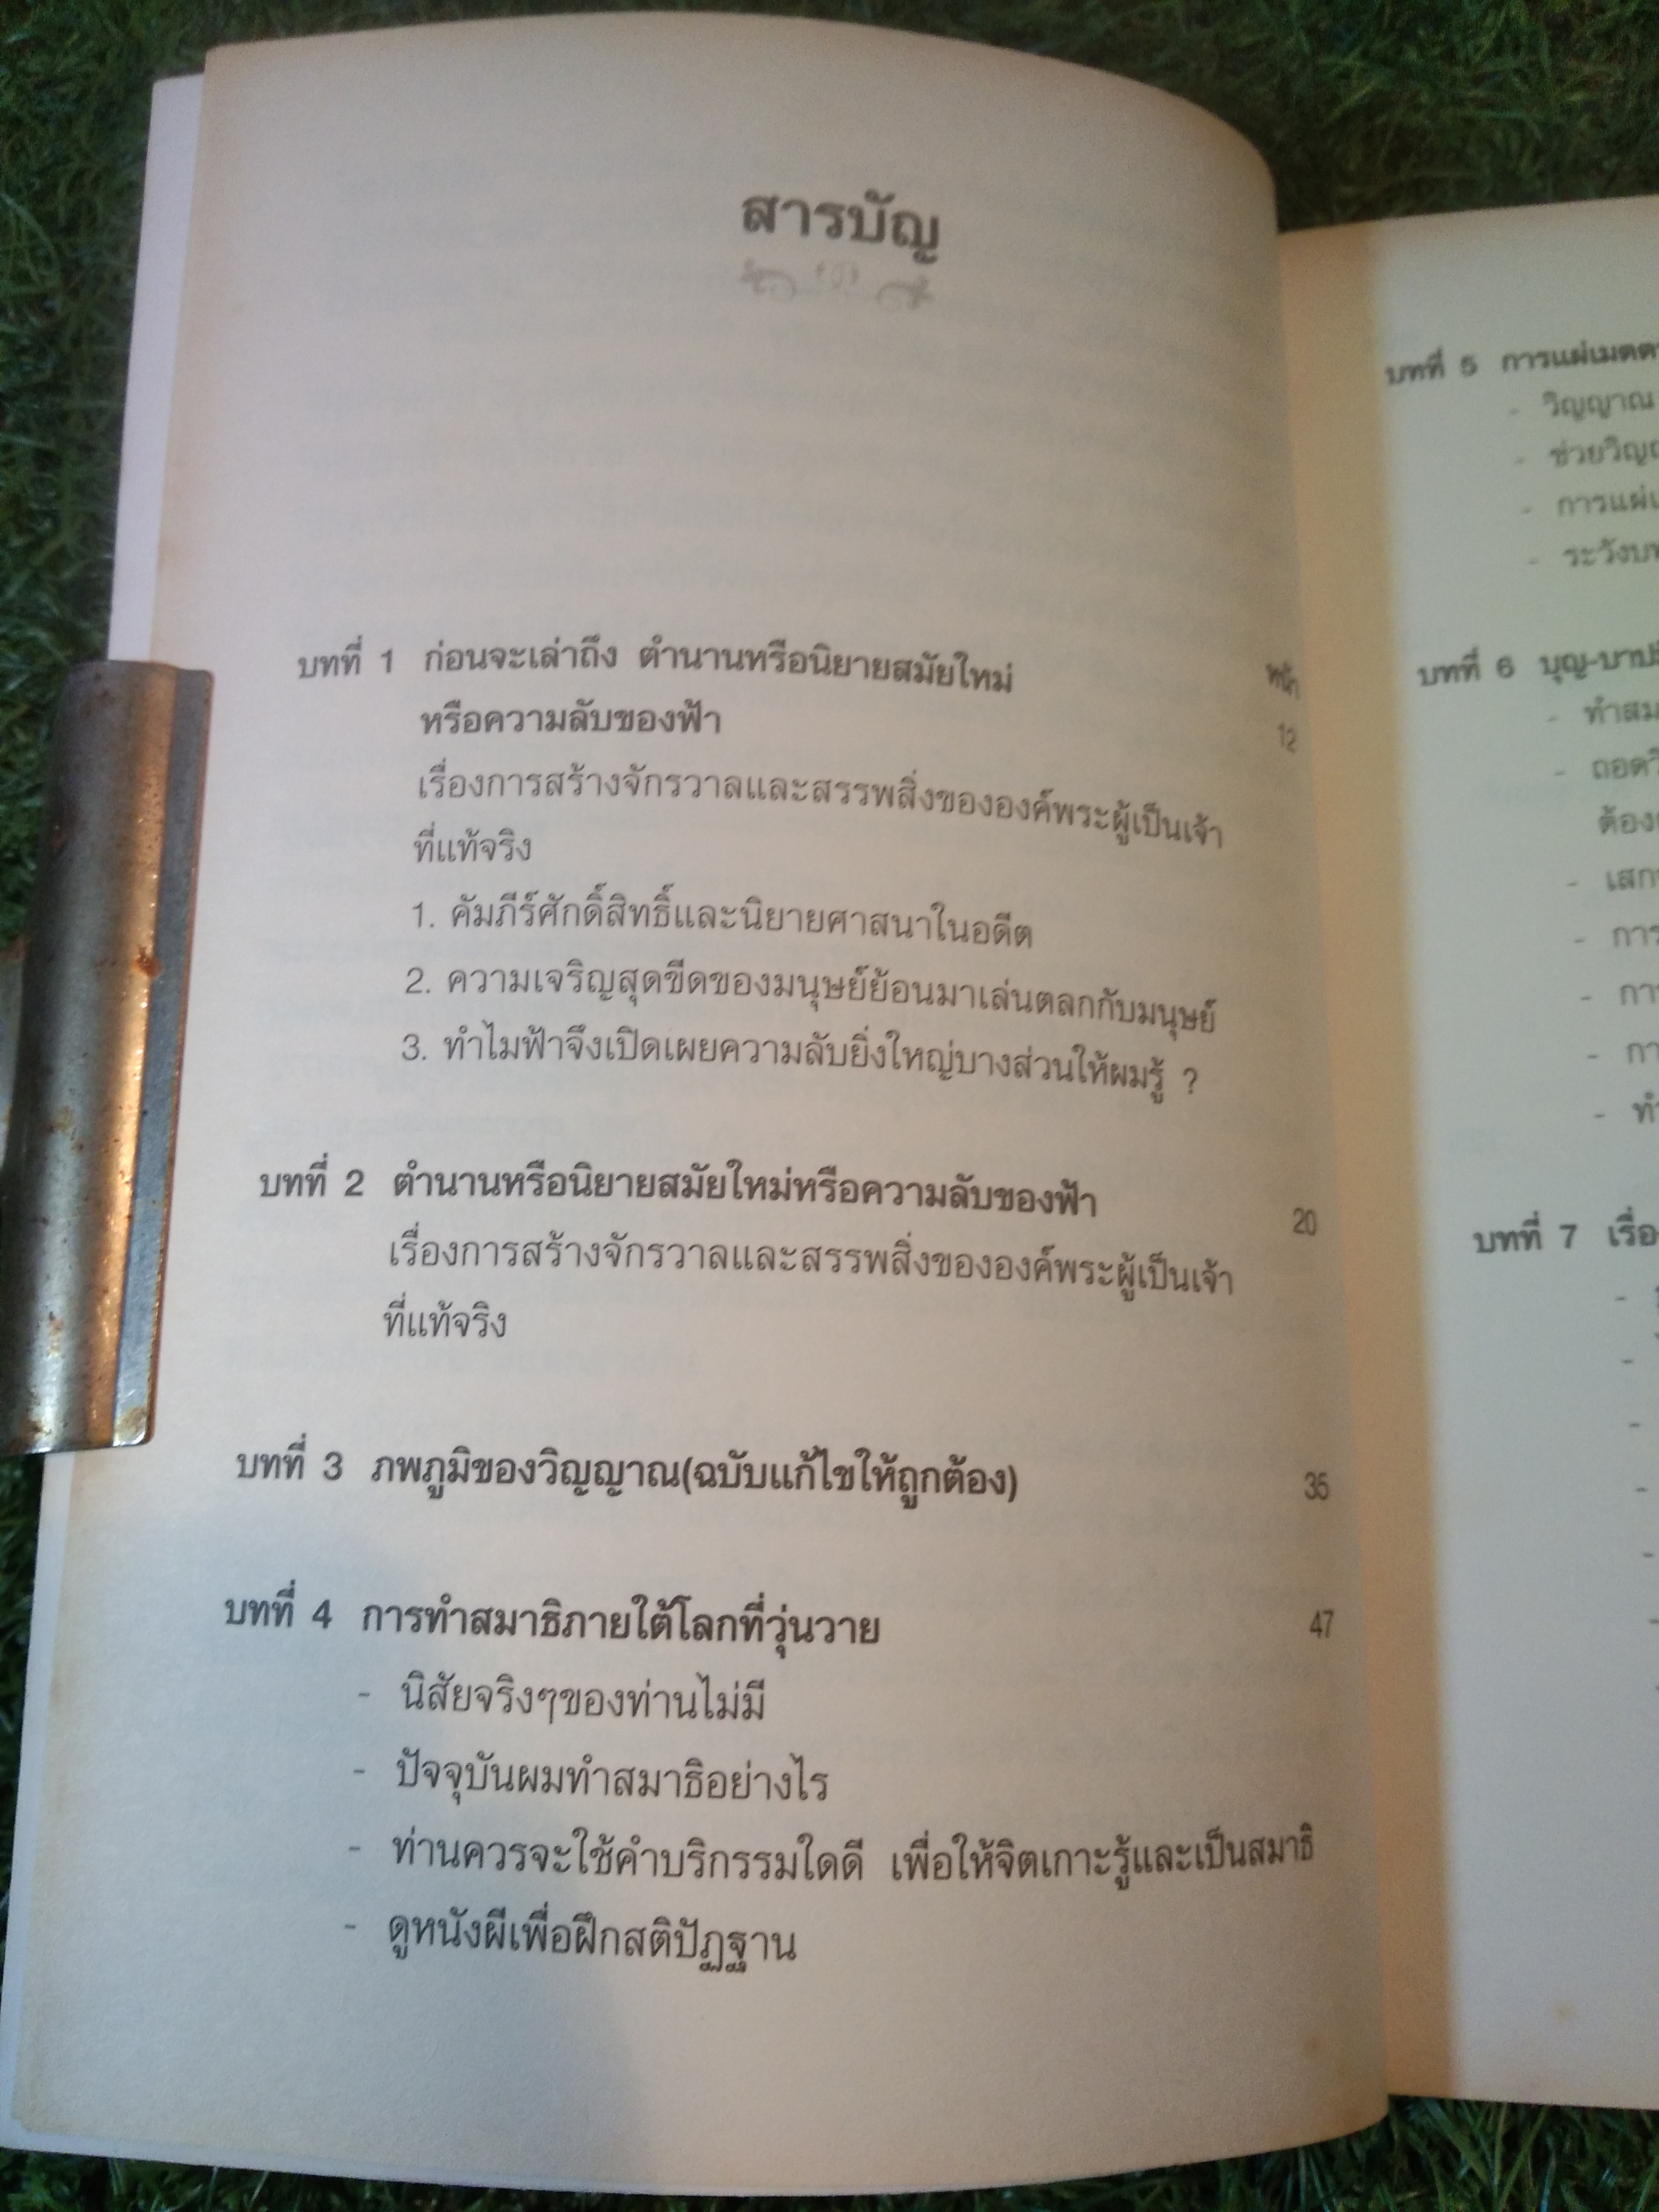 สารบัญ
หน้า
บทที่ 1 ก่อนจะเล่าถึง ตำนานหรือนิยายสมัยใหม่
หรือความลับของฟ้า 12
เรื่องการสร้างจักรวาลและสรรพสิ่งขององค์พระผู้เป็นเจ้า
ที่แท้จริง
1. คัมภีร์ศักดิ์สิทธิ์และนิยายศาสนาในอดีต
2. ความเจริญสุดขีดของมนุษย์ย้อนมาเล่นตลกกับมนุษย์
3. ทำไมฟ้าจึงเปิดเผยความลับยิ่งใหญ่บางส่วนให้ผมรู้ ?
บทที่ 2 ตำนานหรือนิยายสมัยใหม่หรือความลับของฟ้า 20
เรื่องการสร้างจักรวาลและสรรพสิ่งขององค์พระผู้เป็นเจ้า
ที่แท้จริง
บทที่ 3 ภพภูมิของวิญญาณ(ฉบับแก้ไขให้ถูกต้อง) 35
บทที่ 4 การทำสมาธิภายใต้โลกที่วุ่นวาย 47
- นิสัยจริงๆของท่านไม่มี
- ปัจจุบันผมทำสมาธิอย่างไร
- ท่านควรจะใช้คำบริกรรมใดดี เพื่อให้จิตเกาะรู้และเป็นสมาธิ
- ดูหนังผีเพื่อฝึกสติปัฏฐาน
บทที่ 5 การแผ่เมตต
- วิญญาณ
- ช่วยวิญ
- การแผ่
- ระวัง
บทที่ 6 บุญ-บาป
- ทำสม
- ถอด
ต้อง
- เสก
- การ
- กา
- กา
- ทำ
บทที่ 7 เรื่อ